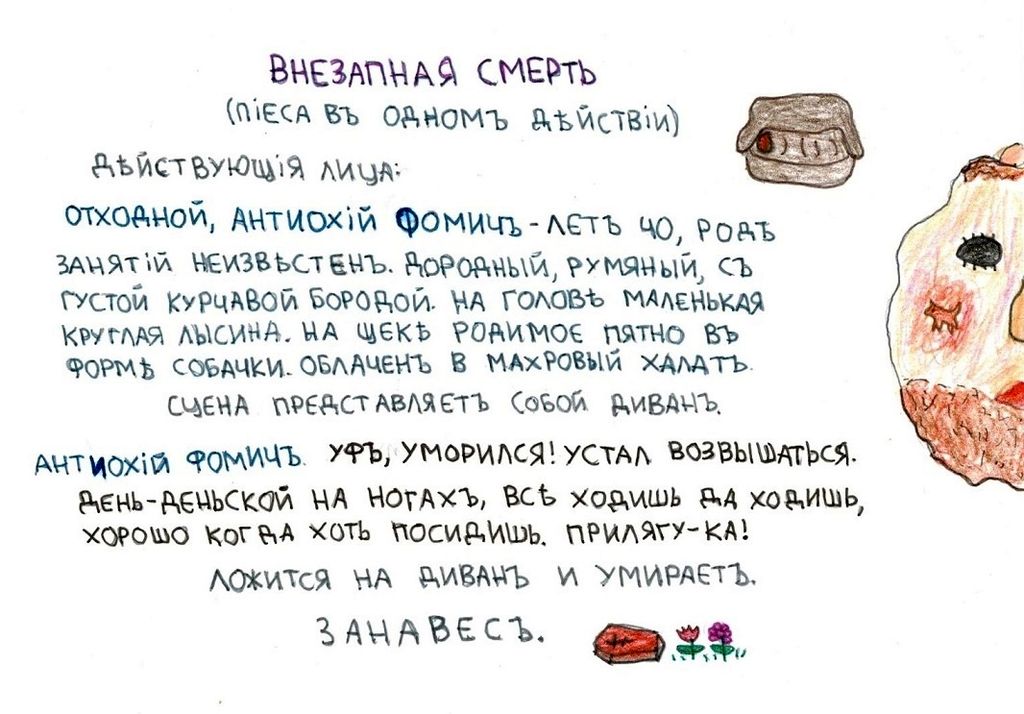 ВНЕЗАПНАЯ СМЕРТЬ
(ПІЕСА ВЪ ОДНОМЪ ДѢЙСТВІИ)
ДѢЙСТВУЮЩІЯ ЛИЦА:
ОТХОДНОЙ, АНТИОХІЙ ФОМИЧЪ - ЛЕТЪ 40, РОДЪ
ЗАНЯТІЙ НЕИЗВѢСТЕНЪ. ДОРОДНЫЙ, РУМЯНЫЙ, СЪ
ГУСТОЙ КУРЧАВОЙ БОРОДОЙ. НА ГОЛОВѢ МАЛЕНЬКАЯ
КРУГЛАЯ ЛЫСИНА. НА ЩЕКѢ РОДИМОЕ ПЯТНО ВЪ
ФОРМѢ СОБАЧКИ. ОБЛАЧЕНЪ В МАХРОВЫЙ ХАЛАТЪ.
СЦЕНА ПРЕДСТАВЛЯЕТЪ СОБОЙ ДИВАНЪ.
АНТИОХІЙ ФОМИЧЪ. УФЪ, УМОРИЛСЯ! УСТАЛ ВОЗВЫШАТЬСЯ.
ДЕНЬ-ДЕНЬСКОЙ НА НОГАХЪ, ВСѢ ХОДИШЬ ДА ХОДИШЬ,
ХОРОШО КОГДА ХОТЬ ПОСИДИШЬ. ПРИЛЯГУ-КА!
ЛОЖИТСЯ НА ДИВАНЪ И УМИРАЕТЪ.
ЗАНАВЕСЪ.